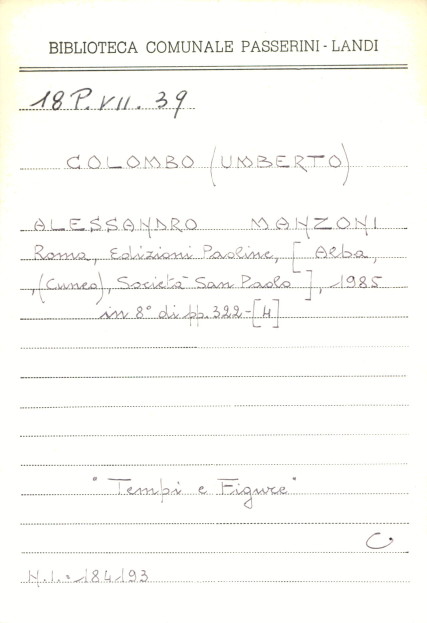 BIBLIOTECA COMUNALE PASSERINI - LANDI
18 P. VII. 39
COLOMBO (UMBERTO)
ALESSANDRO MANZONI
Roma, Edizioni Paoline, [Alba,
(Cuneo), Società San Paolo], 1985
in 8° di pp. 322-[4]
"Tempi e Figure"
C
N.I. = 184193